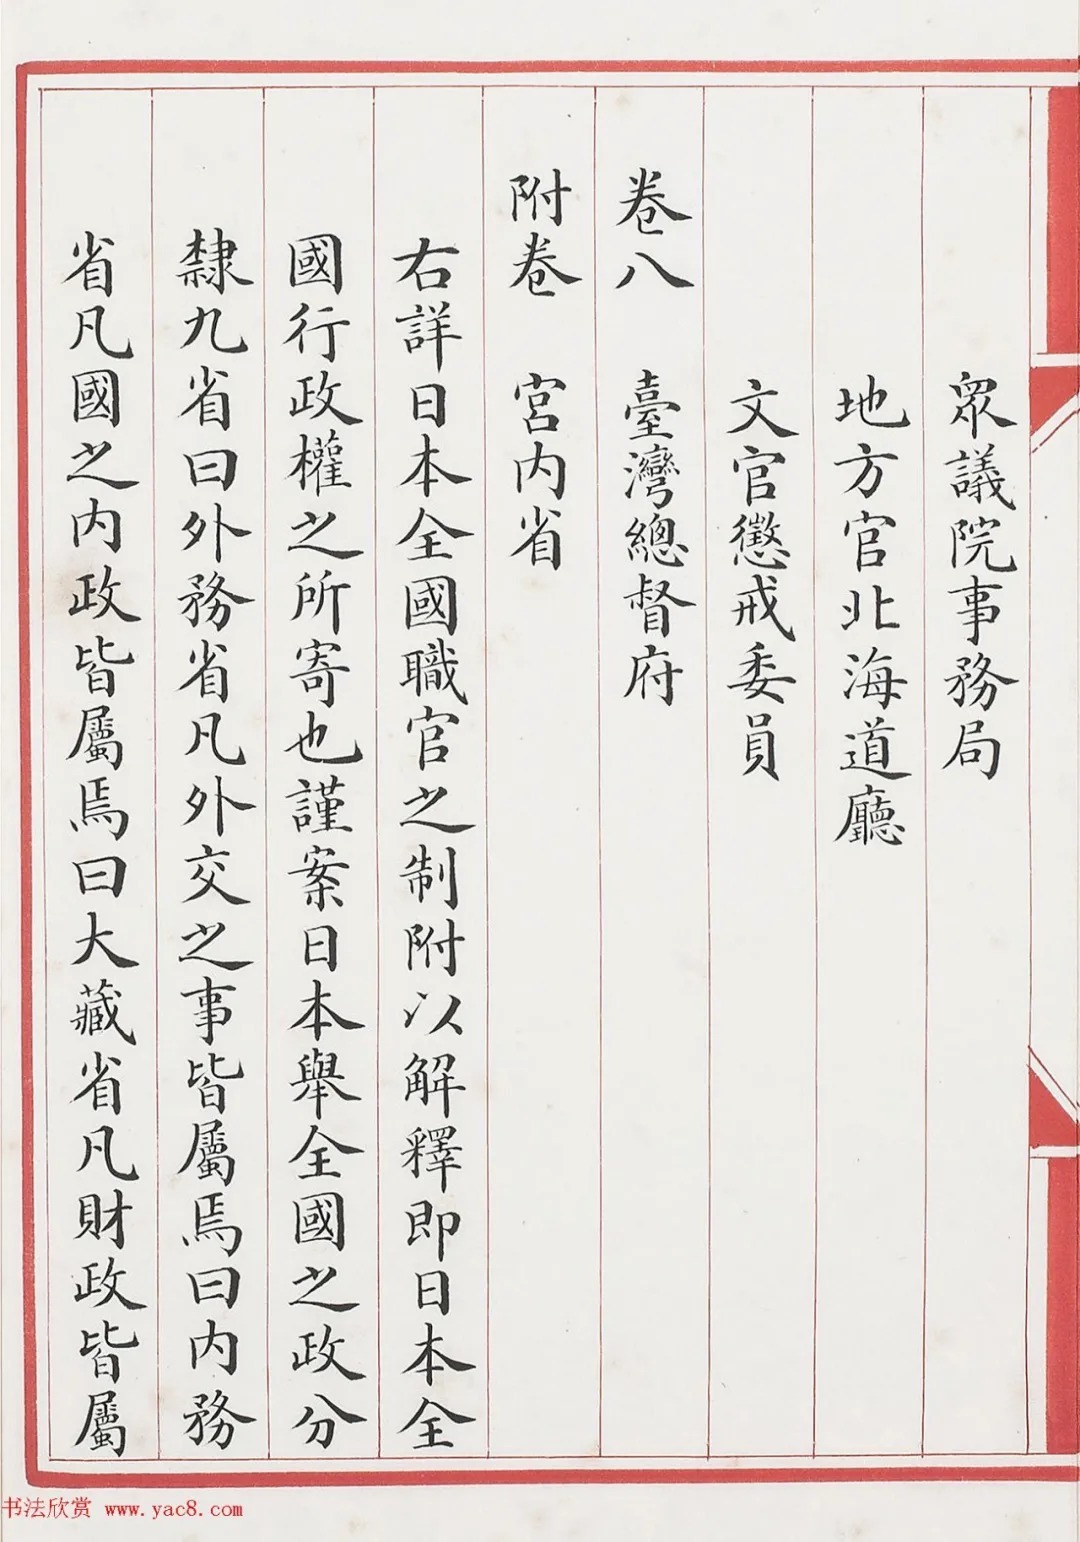 眾議院事務局
地方官北海道廳
文官懲戒委員
卷八 臺灣總督府
附卷 宮內省
右詳日本全國職官之制附以解釋即日本全
國行政權之所寄也謹案日本舉全國之政分
隸九省曰外務省凡外交之事皆屬焉曰內務
省凡國之內政皆屬焉曰大藏省凡財政皆屬
书法欣赏 www.yac8.com